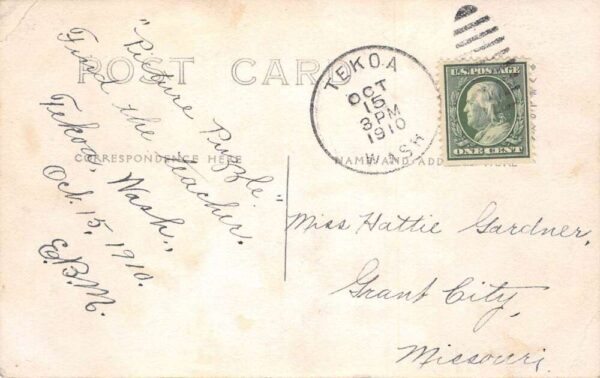 POST CARD
CORRESPONDENCE HERE
NAME AND ADD
"Picture Puzzle."
Find the teacher.
Tekoa, Wash.,
Oct. 15, 1910.
E.B.M.
TEKOA
OCT
15
3PM
1910
WASH.
U.S. POSTAGE
ONE CENT
Miss Hattie Gardner,
Grant City,
Missouri.